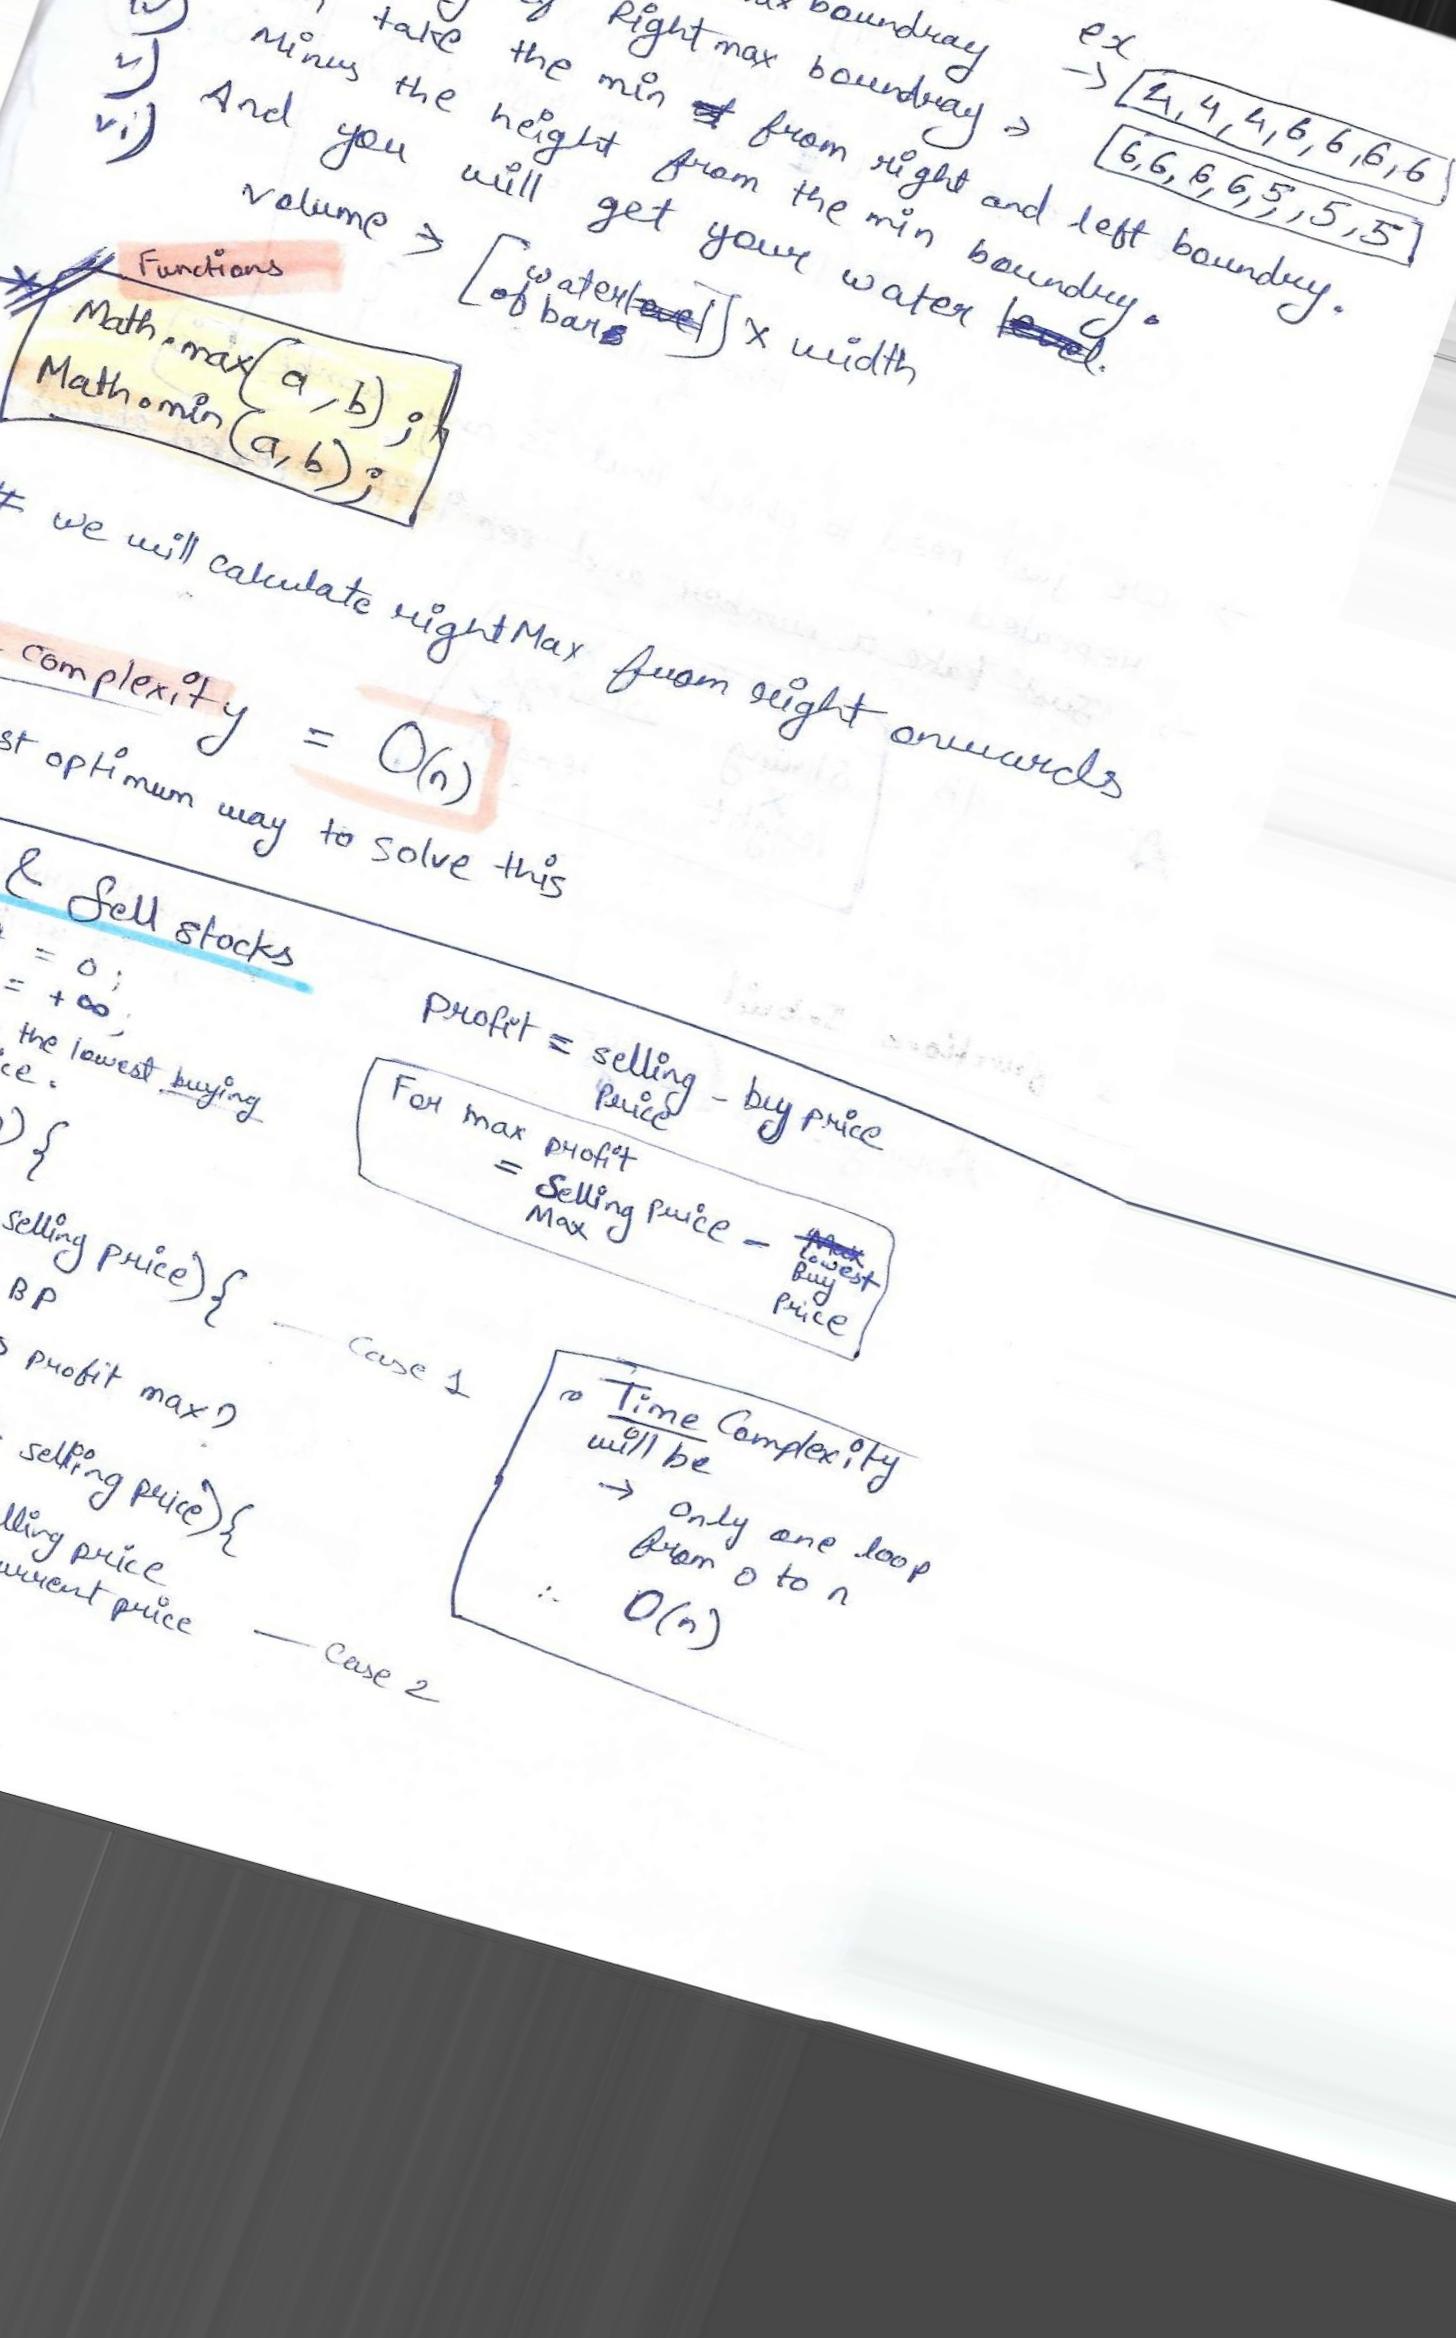 boundray ex
iv) Right max boundray ⇒ → [4, 4, 4, 6, 6, 6, 6]
take the min from right and left boundry. [6, 6, 6, 6, 5, 5, 5]
v) Minus the height from the min boundry.
vi) And you will get your water level.
volume ⇒ [waterlevel of bars] × width
Functions
Math.max(a, b);
Math.min(a, b);
# we will calculate rightMax from right onwards
Complexity = O(n)
optimum way to solve this
& Sell stocks
= 0;
= +∞;
the lowest buying
{
selling price) {
BP — Case 1
profit max?
selling price) {
price
price — Case 2
Profit = selling price - buy price
For max profit
= Selling price - Max lowest
Max Buy
Price
Time Complexity
will be
→ Only one loop
from 0 to n
∴ O(n)